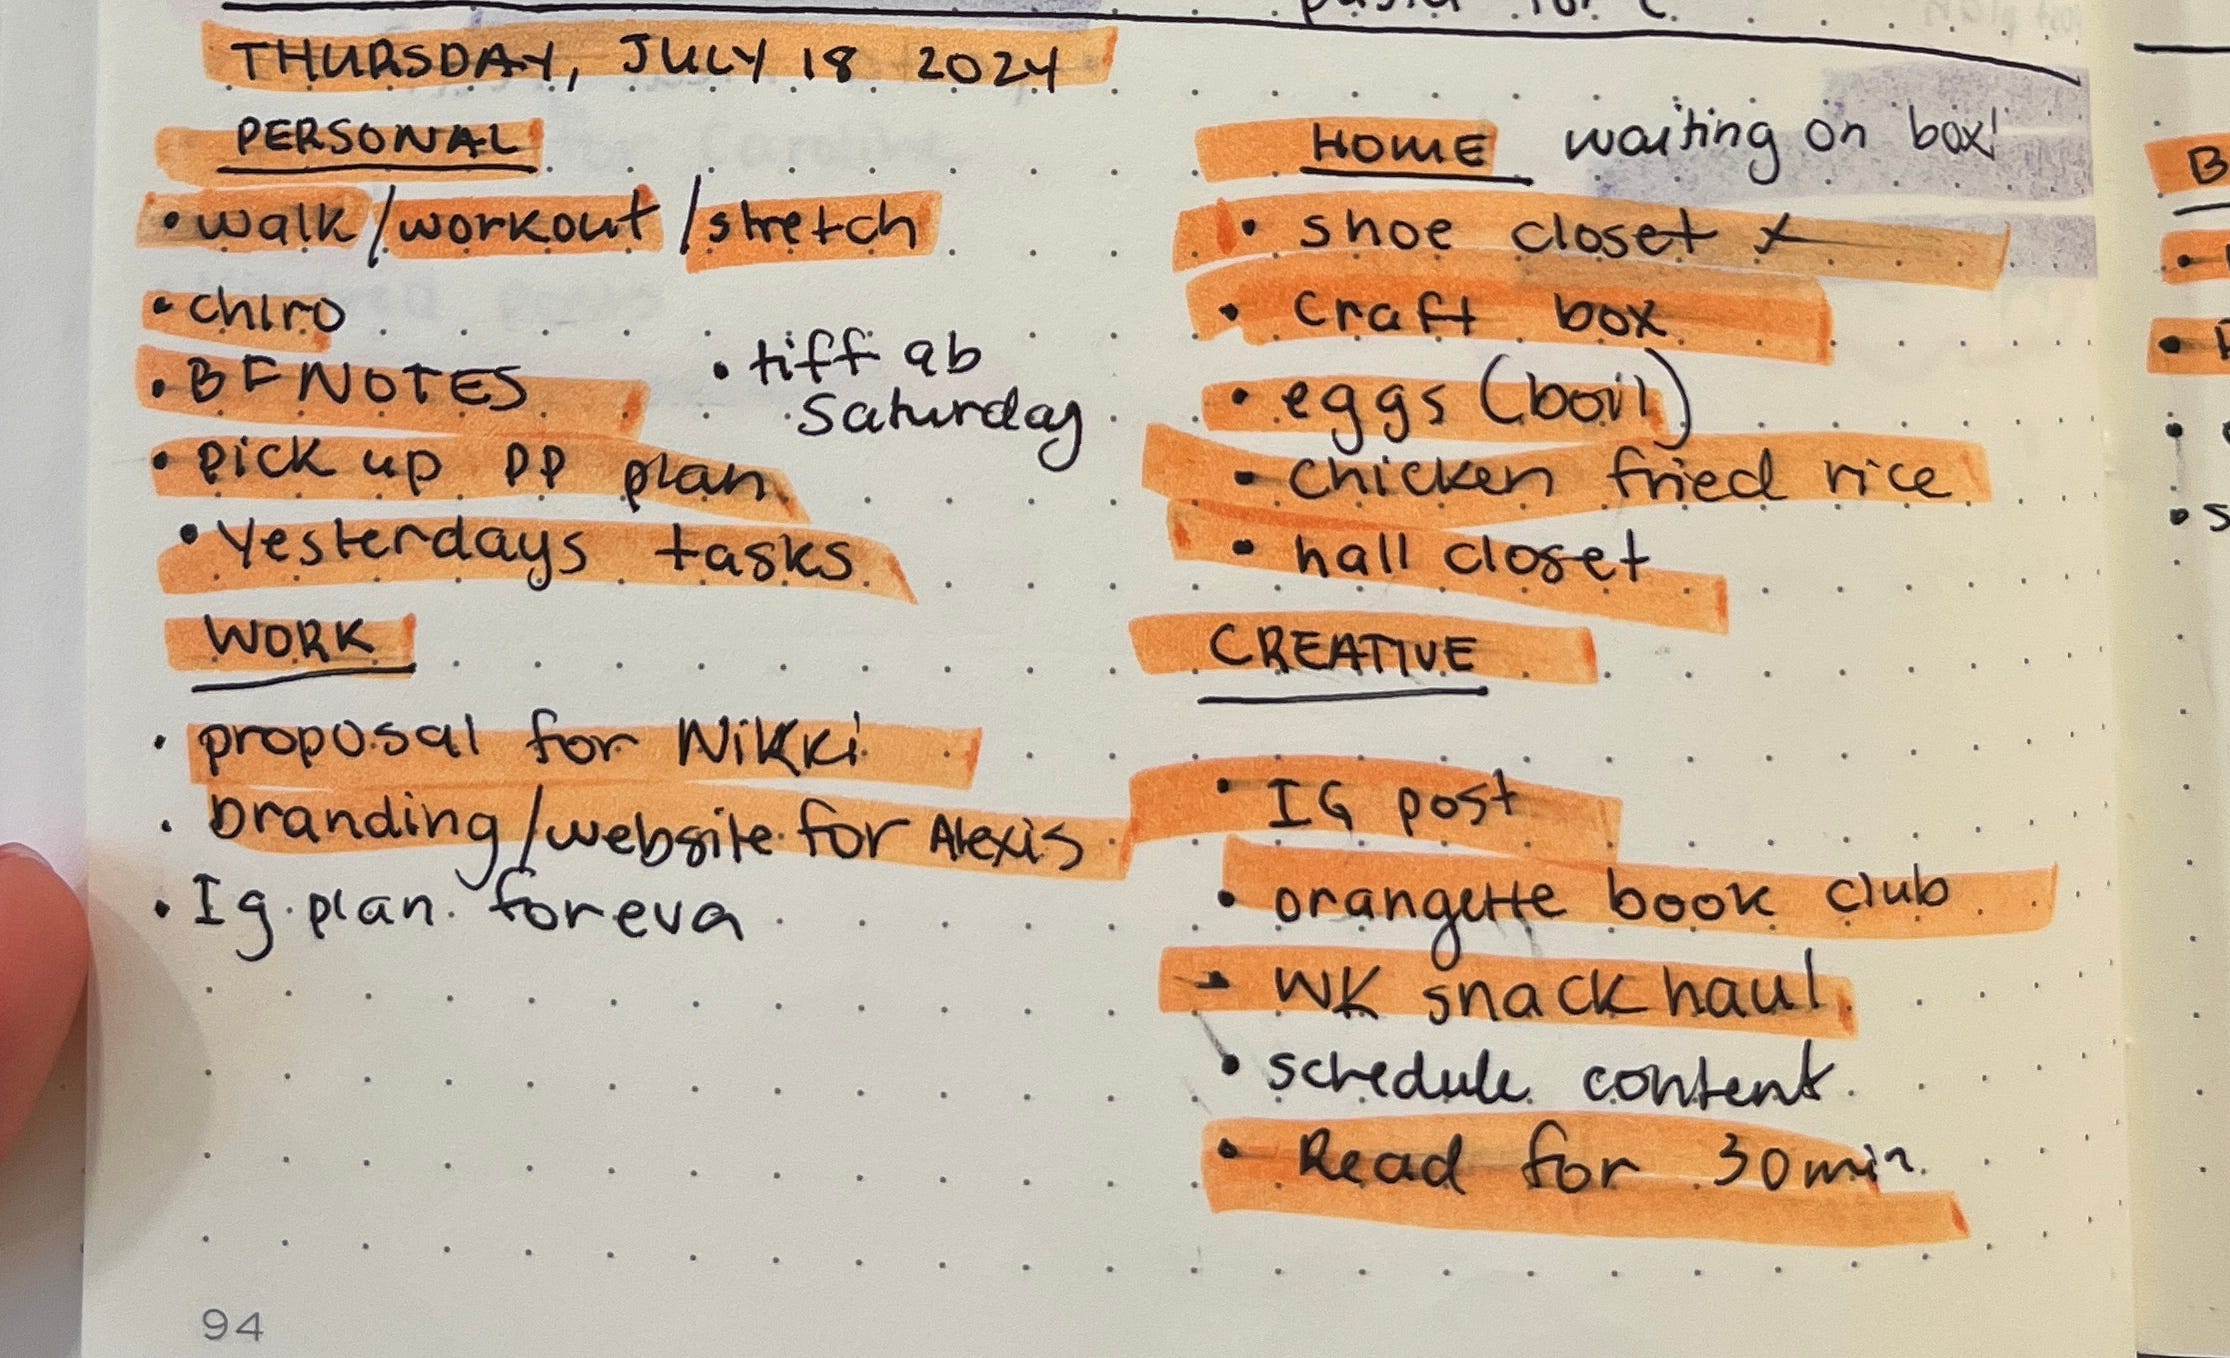 THURSDAY, JULY 18 2024
PERSONAL
• walk/workout/stretch
• chiro
• BF NOTES
• tiff ab
Saturday
• pick up PP plan
• Yesterdays tasks
WORK
• proposal for Nikki
• branding/website for Alexis
• Ig plan for eva
HOME waiting on box!
• shoe closet x
• craft box
• eggs (boil)
• chicken fried rice
• hall closet
CREATIVE
• IG post
• orangette book club
• WK snack haul
• schedule content
• Read for 30 min
94